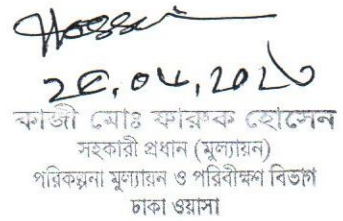 কাজী মোঃ ফারুক হোসেন
সহকারী প্রধান (মুল্যায়ন)
পরিকল্পনা মুল্যায়ন ও পরিবীক্ষণ বিভাগ
ঢাকা ওয়াসা